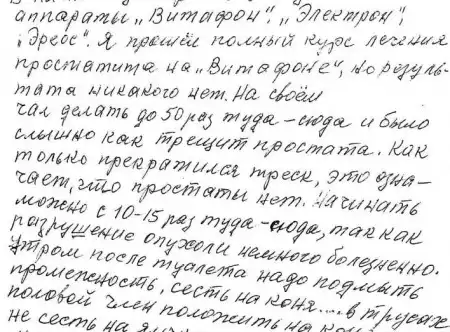 аппараты „Витафон", „Электрон",
„Эреос". Я прошёл полный курс лечения
простатита на „Витафоне", но резуль-
тата никакого нет. На своём
чал делать до 50 раз туда-сюда и было
слышно как трещит простата. Как
только прекратился треск, это озна-
чает, что простаты нет. Начинать
можно с 10-15 раз туда-сюда, так как
разрушение опухоли немного болезненно.
Утром после туалета надо подмыть
промежность, сесть на коня.... в трусах
половой член положить на
не сесть на